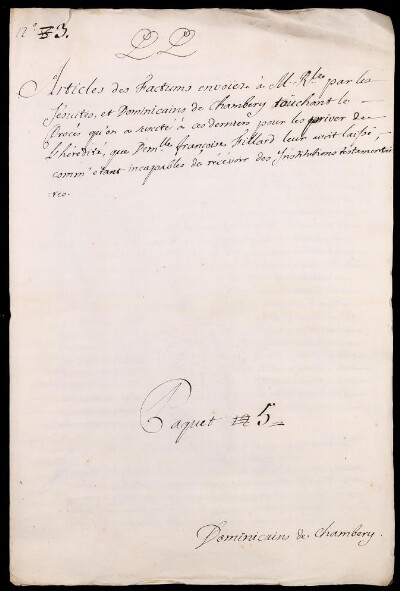 n.° 3.
PP
Articles des Factums envoiez à M. R. par les
Jésuites, et Dominicains de Chambery touchant le
Procès qu'on a suscité à ces derniers pour les priver de
L'hérédité, que Dem.lle françoise Fillard leur avoit laissé,
comm' etant incapables de recevoir des Institutions testamentai
res.
Paquet 5
Dominicains de Chambery.